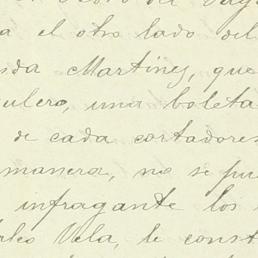 a el otro lado del
Martínez, que
ulero, una boleta
de cada cortadores
manera, no se pue
infragante los
Vela, le const